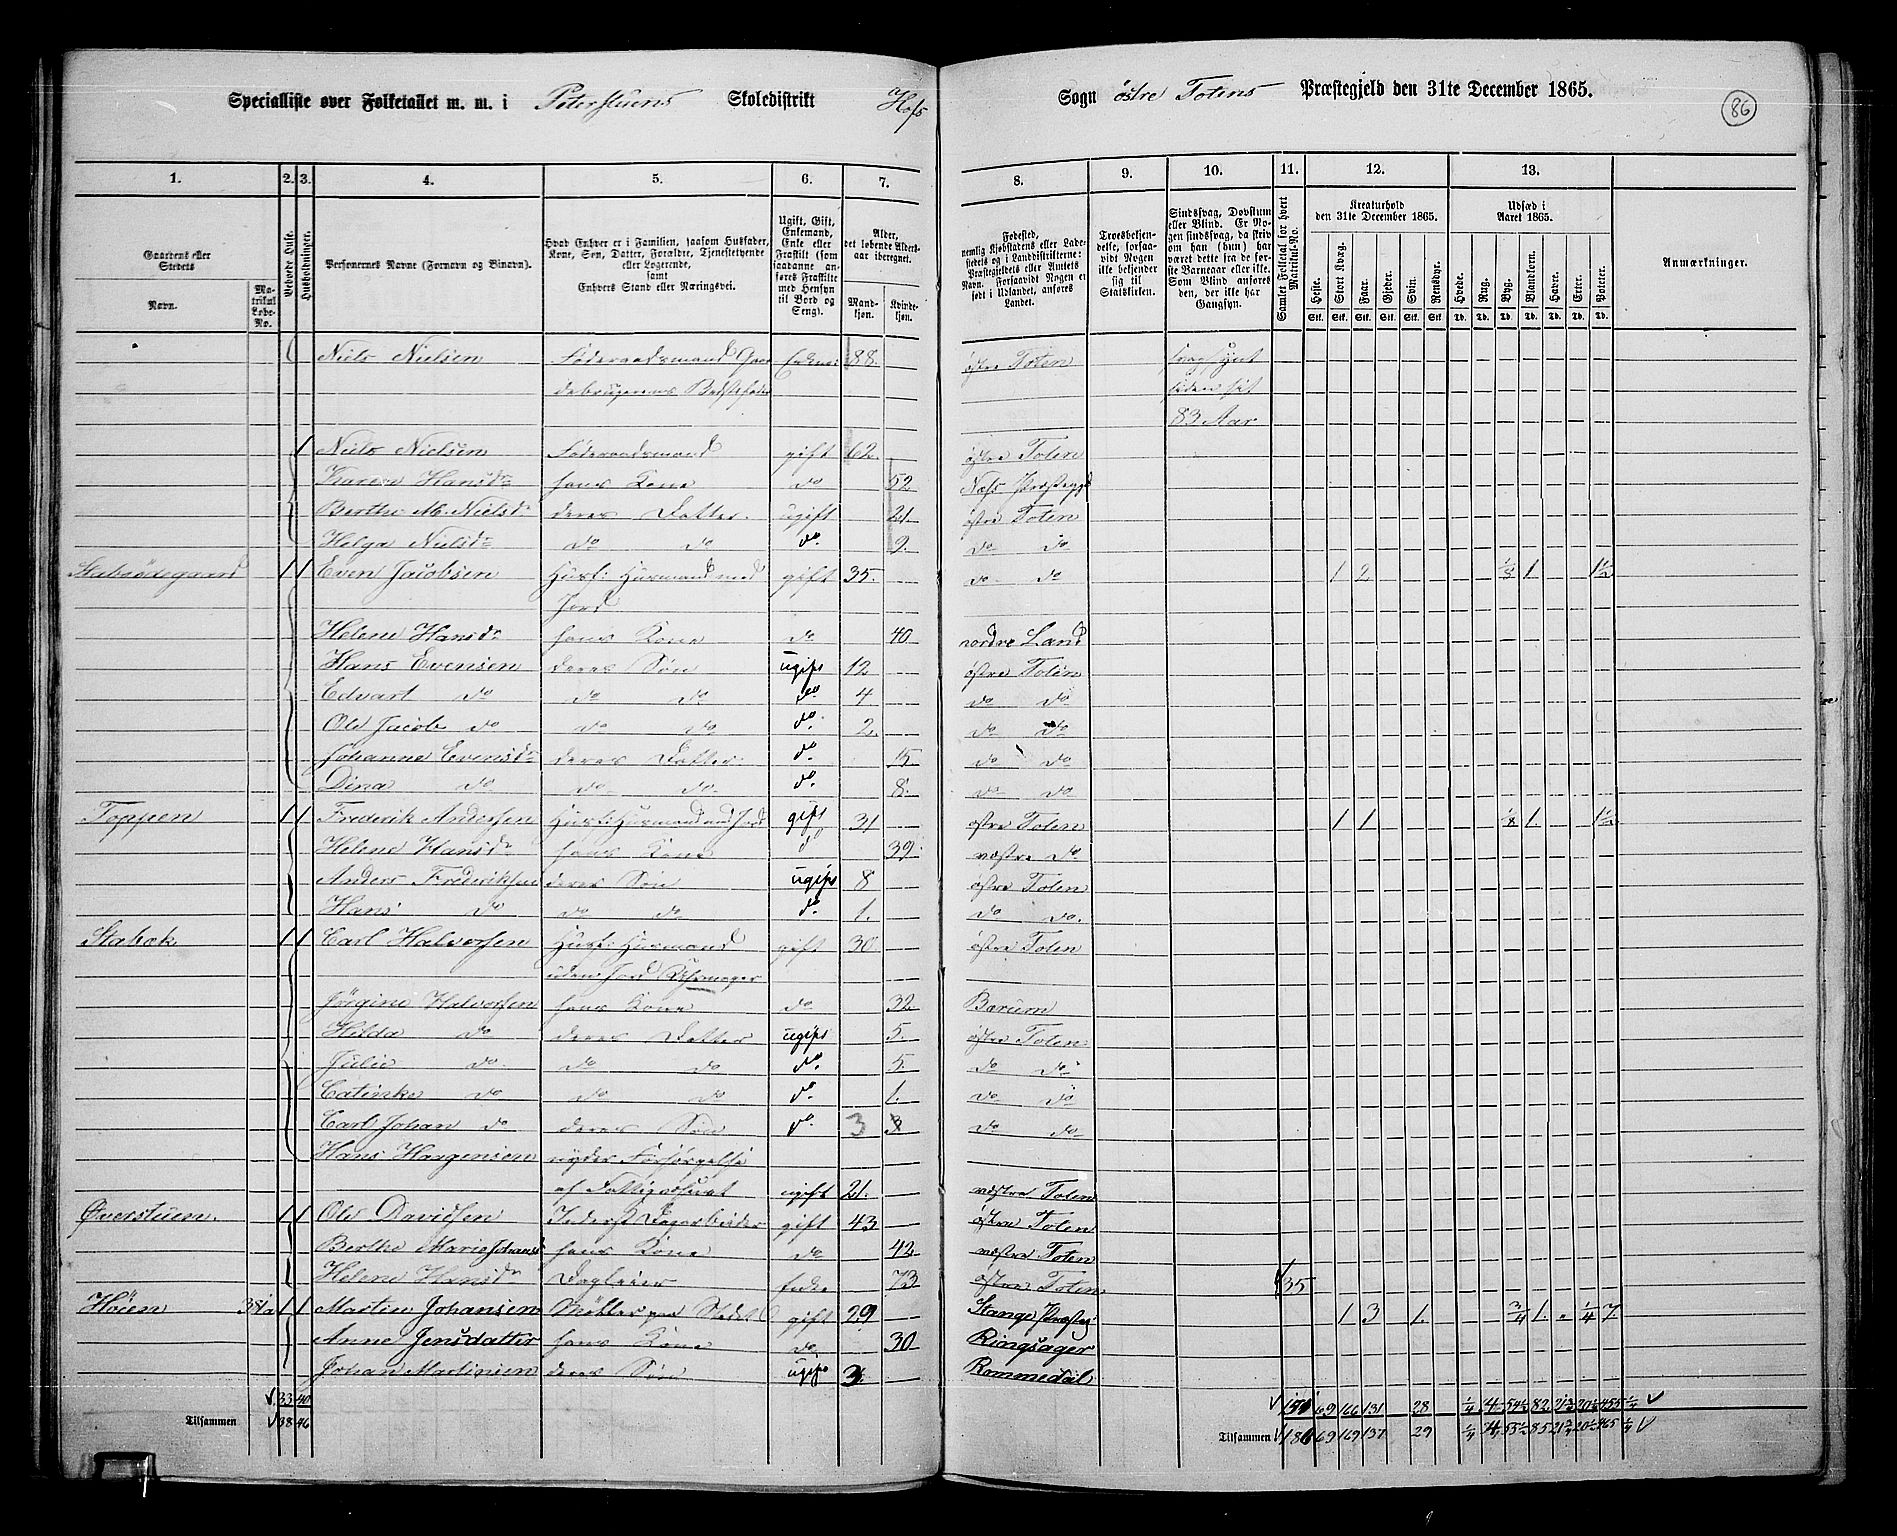 Specialliste over Folketallet m. m. i Peterstuens Skoledistrikt Hofs Sogn østre Totens Præstegjeld den 31te December 1865.
86
1. 2. 3. 4. 5. 6. 7. 8. 9. 10. 11. 12. 13.
Gaardens eller Stedets
Navn.
Matrikul Løbe-No.
Beboede Huse.
Husholdninger.
Personernes Navne (Fornavn og Binavn).
Hvad Enhver er i Familien, saasom Husfader, Kone, Søn, Datter, Forældre, Tjenestetyende eller Logerende, samt Enhvers Stand eller Næringsvei.
Ugift, Gift, Enkemand, Enke eller Fraskilt (som saadanne anføres Fraskilte med Hensyn til Bord og Seng).
Alder, det løbende Aldersaar iberegnet.
Mandkjøn.
Kvindekjøn.
Fødested, nemlig Kjøbstadens eller Ladestedets og i Landdistrikterne: Præstegjeldets eller Amtets Navn. Forsaavidt Nogen er født i Udlandet, anføres Landet.
Troesbekjendelse, forsaavidt Nogen ikke bekjender sig til Statskirken.
Sindssvag, Døvstum eller Blind. Er Nogen sindssvag, da skriv om han (hun) har været dette fra de første Barneaar eller ikke. Som Blind anføres den, der ikke har Gangsyn.
Samlet Folketal for hvert Matrikul-No.
Kreaturhold den 31te December 1865.
Heste. Stort Kvæg. Faar. Gjeder. Svin. Rensdyr.
Stk. Stk. Stk. Stk. Stk. Stk.
Udsæd i Aaret 1865.
Hvede. Rug. Byg. Blandkorn. Havre. Erter. Poteter.
Td. Td. Td. Td. Td. Td. Td.
Anmærkninger.
Niels Nielsen Føderaadsmand Gaar Enkem: 88. østre Toten svagsynt
debrugerens Bedstefader siden sit
83 Aar
1 Niels Nielsen Føderaadsmand gift 62. østre Toten
Karen Hansdr hans Kone do 52 Næs Præstegjd
Berthe M. Nielsdr deres Datter. ugift 21. østre Toten
Helga Nielsdr do do do. 9. do do
Stabsødegaard 1 1 Even Jacobsen Husf: Husmand med gift 35. do do 1 2 1/8 1. 1 1/2
Jord
Helene Hansdr hans Kone do 40 nordre Land
Hans Evensen deres Søn ugift 12 østre Toten
Edvart do do do do 4 do do
Ole Jacob do do do do. 2. do do
Johanne Evensdr deres Datter do. 15. do do
Dina do do do do. 8. do do
Toppen 1 1 Frederik Andersen Husf: Husmand med Jord gift 31 østre Toten 1 1 1/8 1. 1 1/2
Helene Hansdr hans Kone do 39 vestre do
Anders Frederiksen deres Søn ugift 8 østre Toten
Hans do do do do. 1. do do.
Stabæk 1 1 Carl Halvorsen Husf: Husmand gift 30. østre Toten
uden Jord
Jørgine Halvorsen hans Kone do 32 Bærum
Hilda do deres Datter ugift 5. østre Toten
Julie do do do do. 5. do do
Catinka do do do do. 1. do do
Carl Johan do deres Søn do. 3 3 do do
Hans Haagensen nyder Forsørgelse
af Fattigvæsenet ugift 21. vestre Toten
Øverstuen. 1 1 Ole Davidsen Inderst Dagarbeider gift 43 østre Toten
Berthe Marie Johansd hans Kone do 42 vestre Toten
Helene Hansdr Dagleier Enke 73 østre Toten 35
Høien 1 1 Martin Johansen Møller paa Stedet gift 29 Stange Præstegj 1 3 1. 3/4 1. „ 1/4 7.
Anne Jensdatter hans Kone do 30 Ringsager
Johan Martinien deres Søn ugift 3. Rommedal
33 40 69 166 131 28 1/4
Tilsammen 38 46 Tilsammen 69 169 137 29 1/4